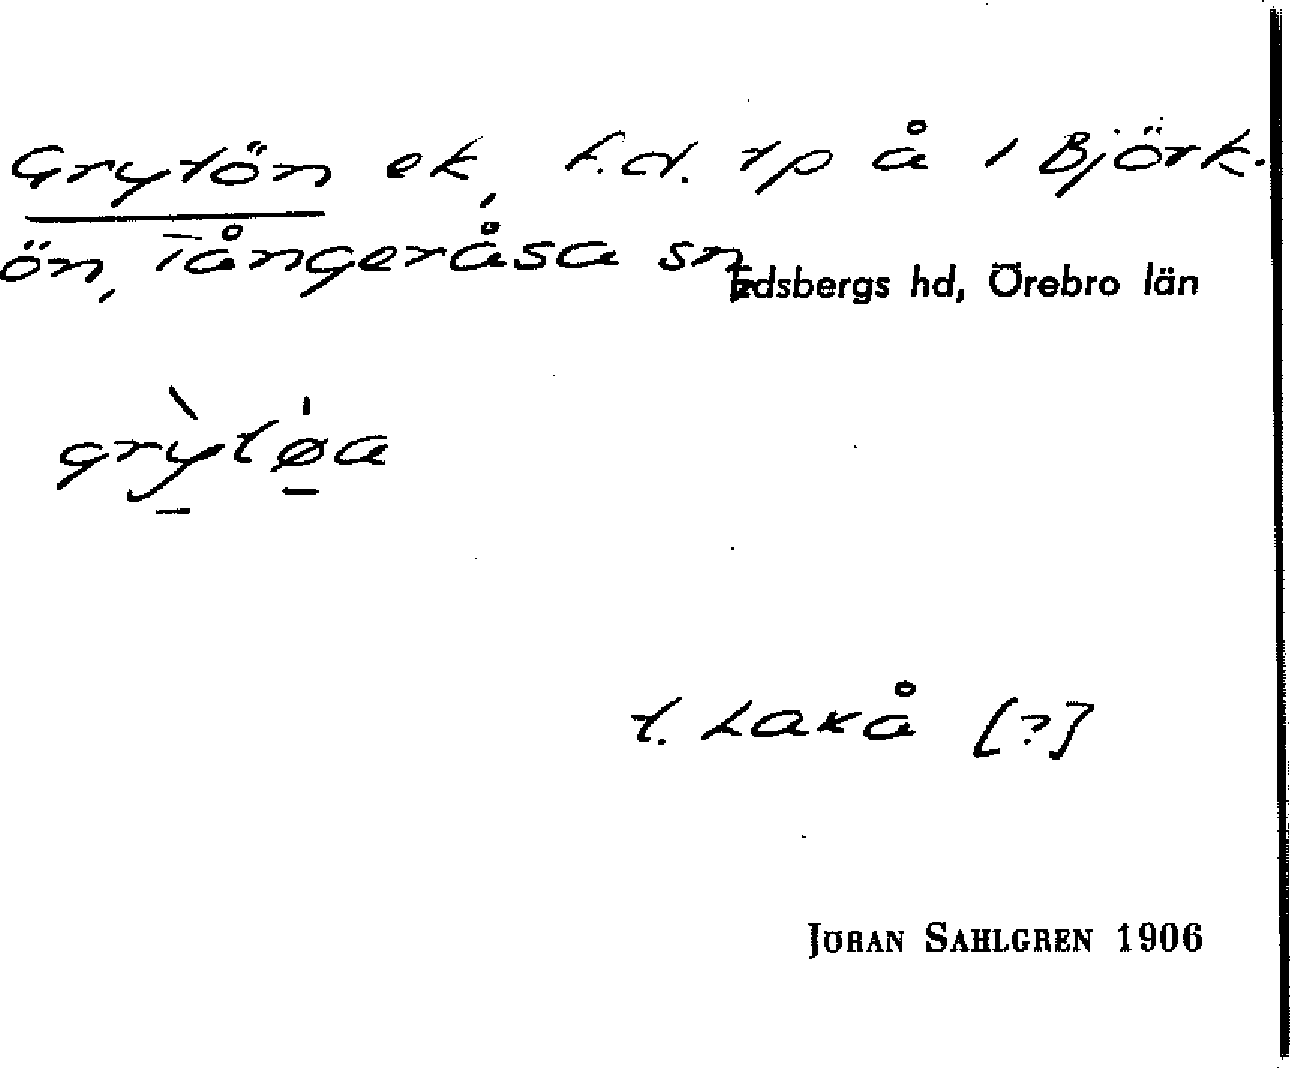 Grytön ek, f.d. tp å / Björk-
ön, Tångeråsa sn
Edsbergs hd, Örebro län
grỳtǿa
t. Lakå [?]
JÖRAN SAHLGREN 1906